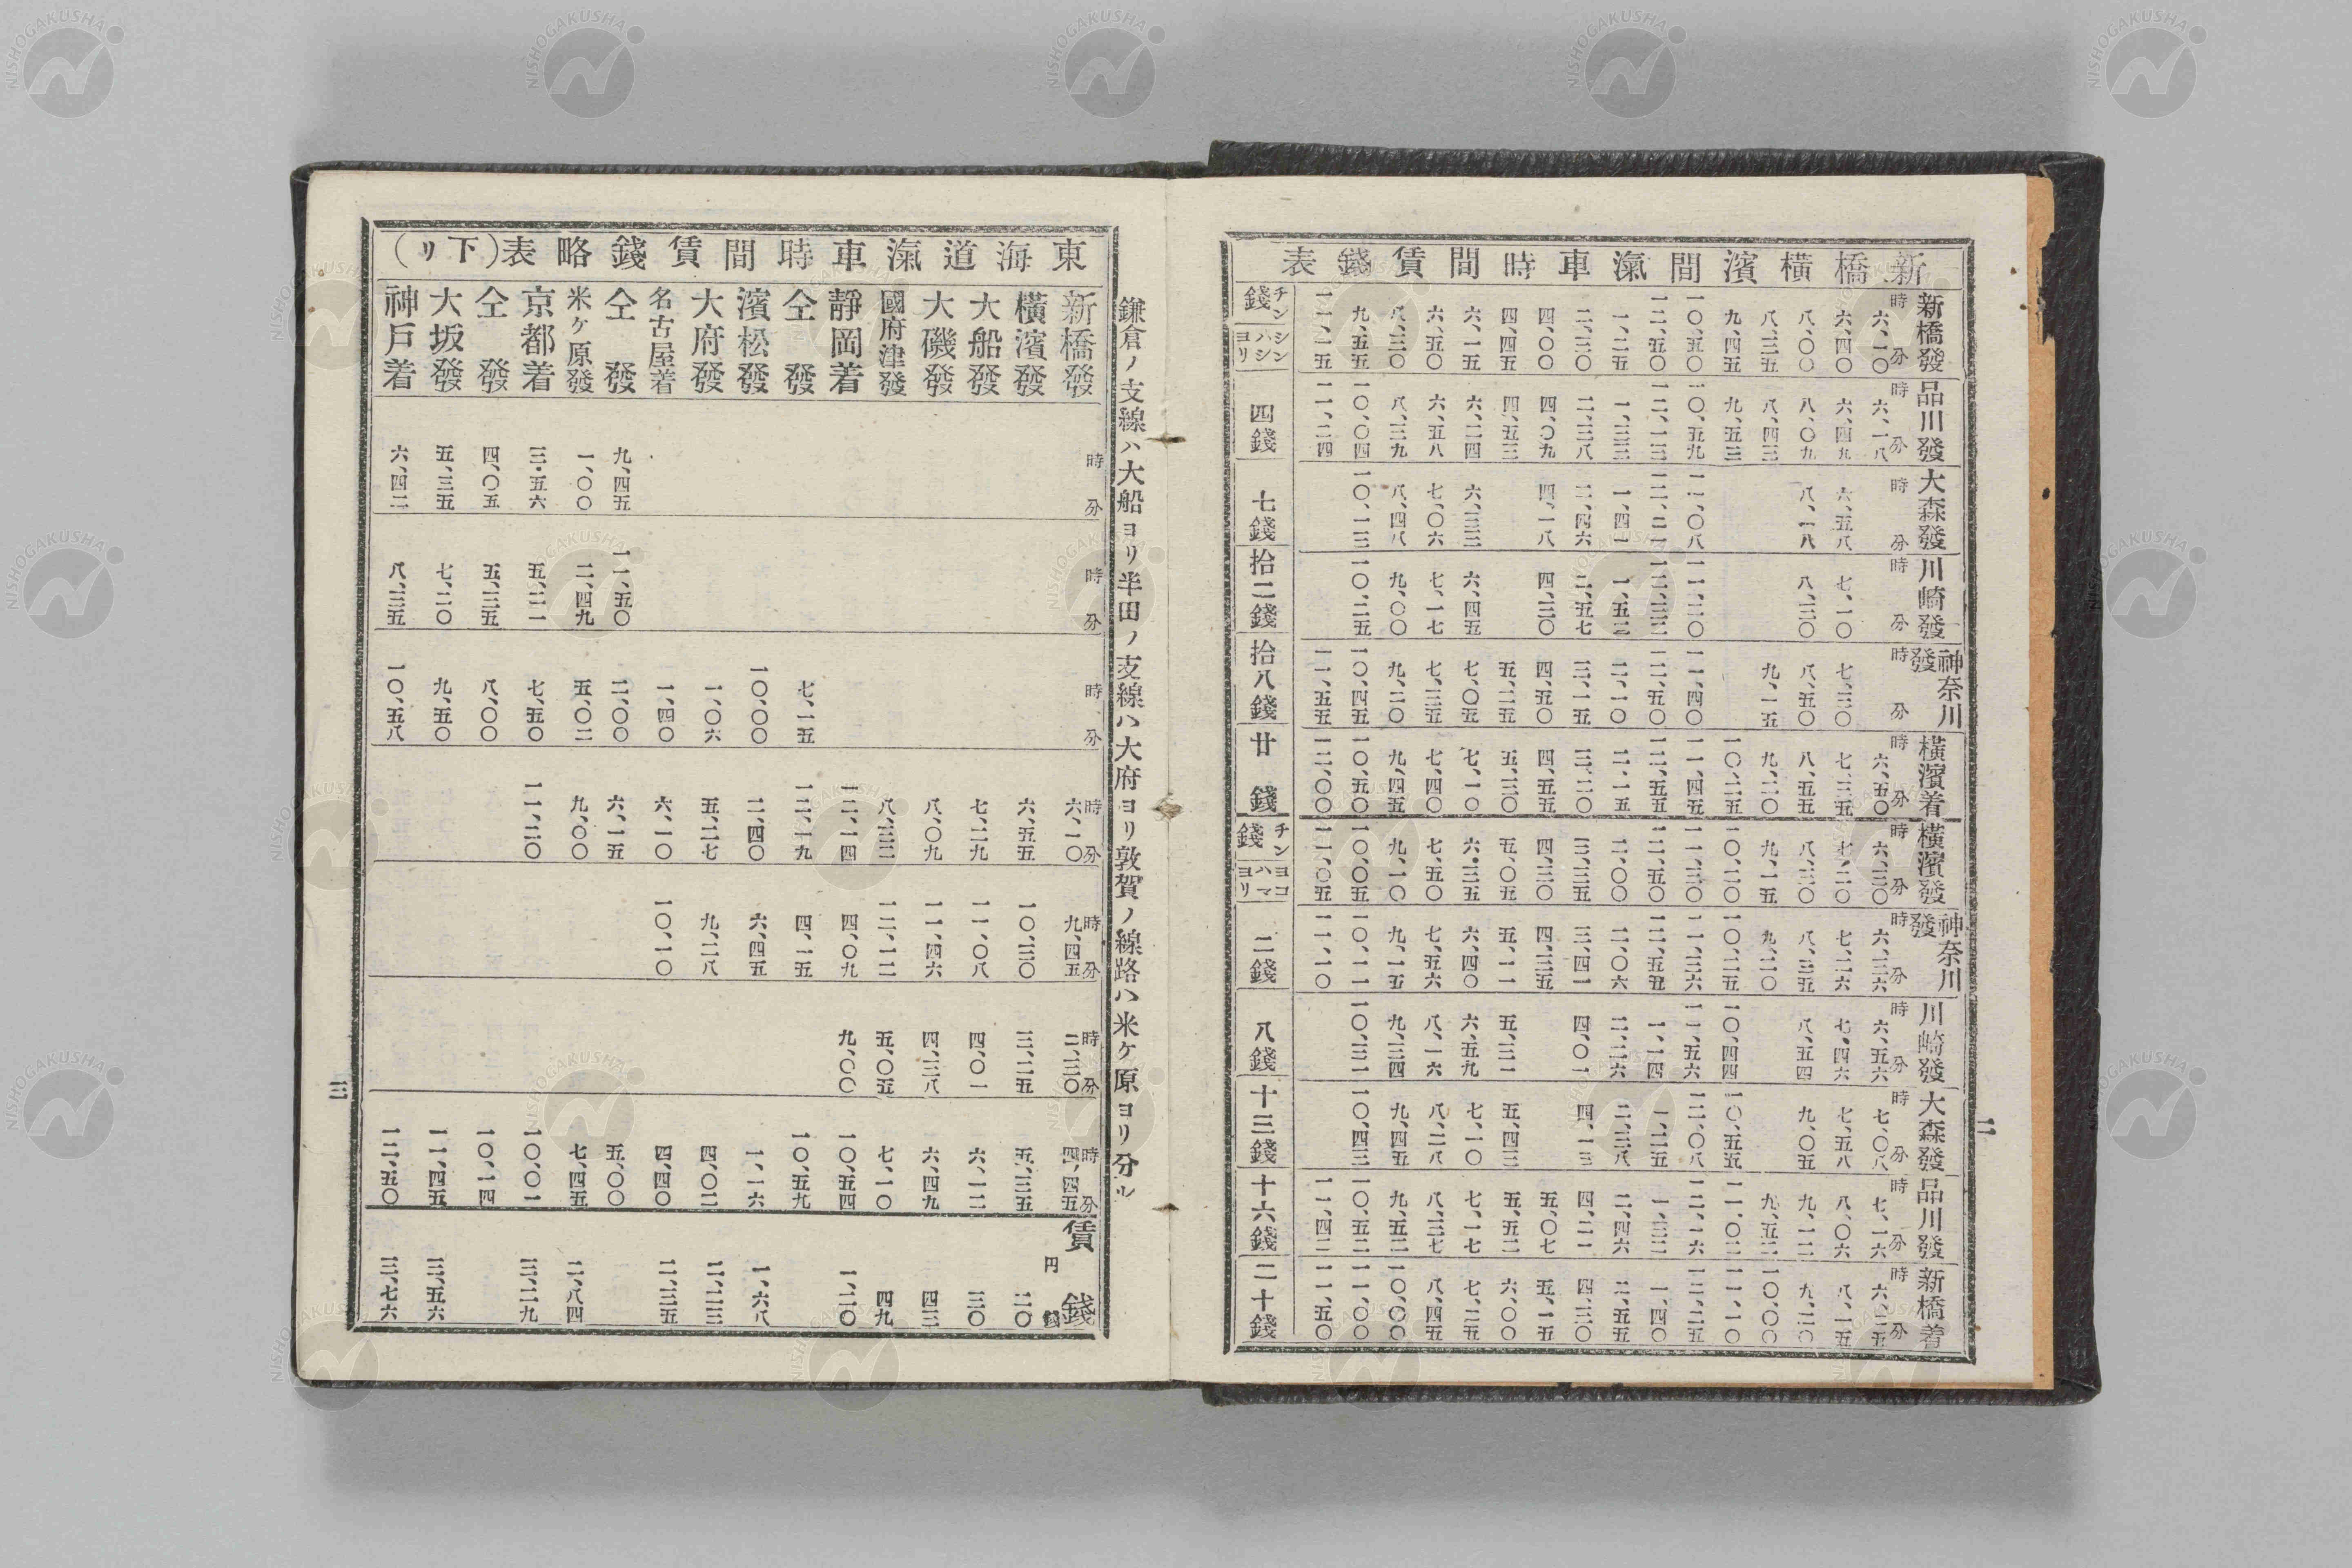 新橋橫濱間滊車時間賃錢表
新橋發 品川發 大森發 川崎發 神奈川發 橫濱着 橫濱發 神奈川發 川崎發 大森發 品川發 新橋着
時分 時分 時分 時分 時分 時分 時分 時分 時分 時分 時分 時分
六、一〇 六、一八 六、五〇 六、三〇 六、三六 六、五六 七、〇八 七、一六 六、二五
六、四〇 六、四九 六、五八 七、一〇 七、三〇 七、三五 七、二〇 七、二六 七、四六 七、五八 八、〇六 八、一五
八、〇〇 八、〇九 八、一八 八、三〇 八、五〇 八、五五 八、三〇 八、三五 八、五四 九、〇五 九、一二 九、二〇
八、三五 八、四三 九、一五 九、二〇 九、一五 九、二〇 九、五二 一〇、〇〇
九、四五 九、五三 一〇、二五 一〇、二〇 一〇、二五 一〇、四四 一〇、五五 一一、〇二 一一、一〇
一〇、五〇 一〇、五九 一一、〇八 一一、二〇 一一、四〇 一一、四五 一一、三〇 一一、三六 一一、五六 一二、〇八 一二、一六 一二、二五
一二、五〇 一二、一三 一二、二一 一二、三二 一二、五〇 一二、五五 一二、五〇 一二、五五 一、一四 一、二五 一、三二 一、四〇
一、二五 一、三三 一、四一 一、五二 二、一〇 二、一五 二、〇〇 二、〇六 二、二六 二、三八 二、四六 二、五五
二、三〇 二、三八 二、四六 二、五七 三、一五 三、二〇 三、三五 三、四一 四、〇一 四、一三 四、二一 四、三〇
四、〇〇 四、〇九 四、一八 四、三〇 四、五〇 四、五五 四、三〇 四、三五 五、〇七 五、一五
四、四五 四、五三 五、二五 五、三〇 五、〇五 五、一一 五、三一 五、四三 五、五二 六、〇〇
六、一五 六、二四 六、三三 六、四五 七、〇五 七、一〇 六、三五 六、四〇 六、五九 七、一〇 七、一七 七、二五
六、五〇 六、五八 七、〇六 七、一七 七、三五 七、四〇 七、五〇 七、五六 八、一六 八、二八 八、三七 八、四五
八、三〇 八、三九 八、四八 九、〇〇 九、二〇 九、四五 九、一〇 九、一五 九、三四 九、四五 九、五二 一〇、〇〇
九、五五 一〇、〇四 一〇、一三 一〇、二五 一〇、四五 一〇、五〇 一〇、〇五 一〇、一一 一〇、三一 一〇、四三 一〇、五二 一一、〇〇
一一、一五 一一、二四 一一、五五 一二、〇〇 一一、〇五 一一、一〇 一一、四二 一一、五〇
チン錢 シンハシヨリ 四錢 七錢 拾二錢 拾八錢 廿錢 チン錢 ヨコハマヨリ 二錢 八錢 十三錢 十六錢 二十錢
二
鎌倉ノ支線ハ大船ヨリ半田ノ支線ハ大府ヨリ敦賀ノ線路ハ米ケ原ヨリ分ル
東海道滊車時間賃錢略表(下リ)
時分 時分 時分 時分 時分 時分 時分 賃錢
新橋發 六、一〇 九、四五 二、三〇 四、四五 円 錢
橫濱發 六、五五 一〇、三〇 三、二五 五、三五 二〇
大船發 七、二九 一一、〇八 四、〇一 六、一二 三〇
大磯發 八、〇九 一一、四六 四、三八 六、四九 四三
國府津發 八、三三 一二、一二 五、〇五 七、一〇 四九
靜岡着 一二、一四 四、〇九 九、〇〇 一〇、五四 一、二〇
仝發 七、一五 一二、一九 四、一五 一〇、五九
濱松發 一〇、〇〇 二、四〇 六、四五 一、一六 一、六八
大府發 一、〇六 五、二七 九、二八 四、〇二 二、二三
名古屋着 一、四〇 六、一〇 一〇、一〇 四、四〇 二、三五
仝發 九、四五 一一、五〇 二、〇〇 六、一五 五、〇〇
米ケ原發 一、〇〇 二、四九 五、〇二 九、〇〇 七、四五 二、八四
京都着 三、五六 五、二一 七、五〇 一一、二〇 一〇、〇一 三、二九
仝發 四、〇五 五、三五 八、〇〇 一〇、一四
大坂發 五、三五 七、二〇 九、五〇 一一、四五 三、五六
神戸着 六、四二 八、三五 一〇、五八 一二、五〇 三、七六
三
NISHOGAKUSHA